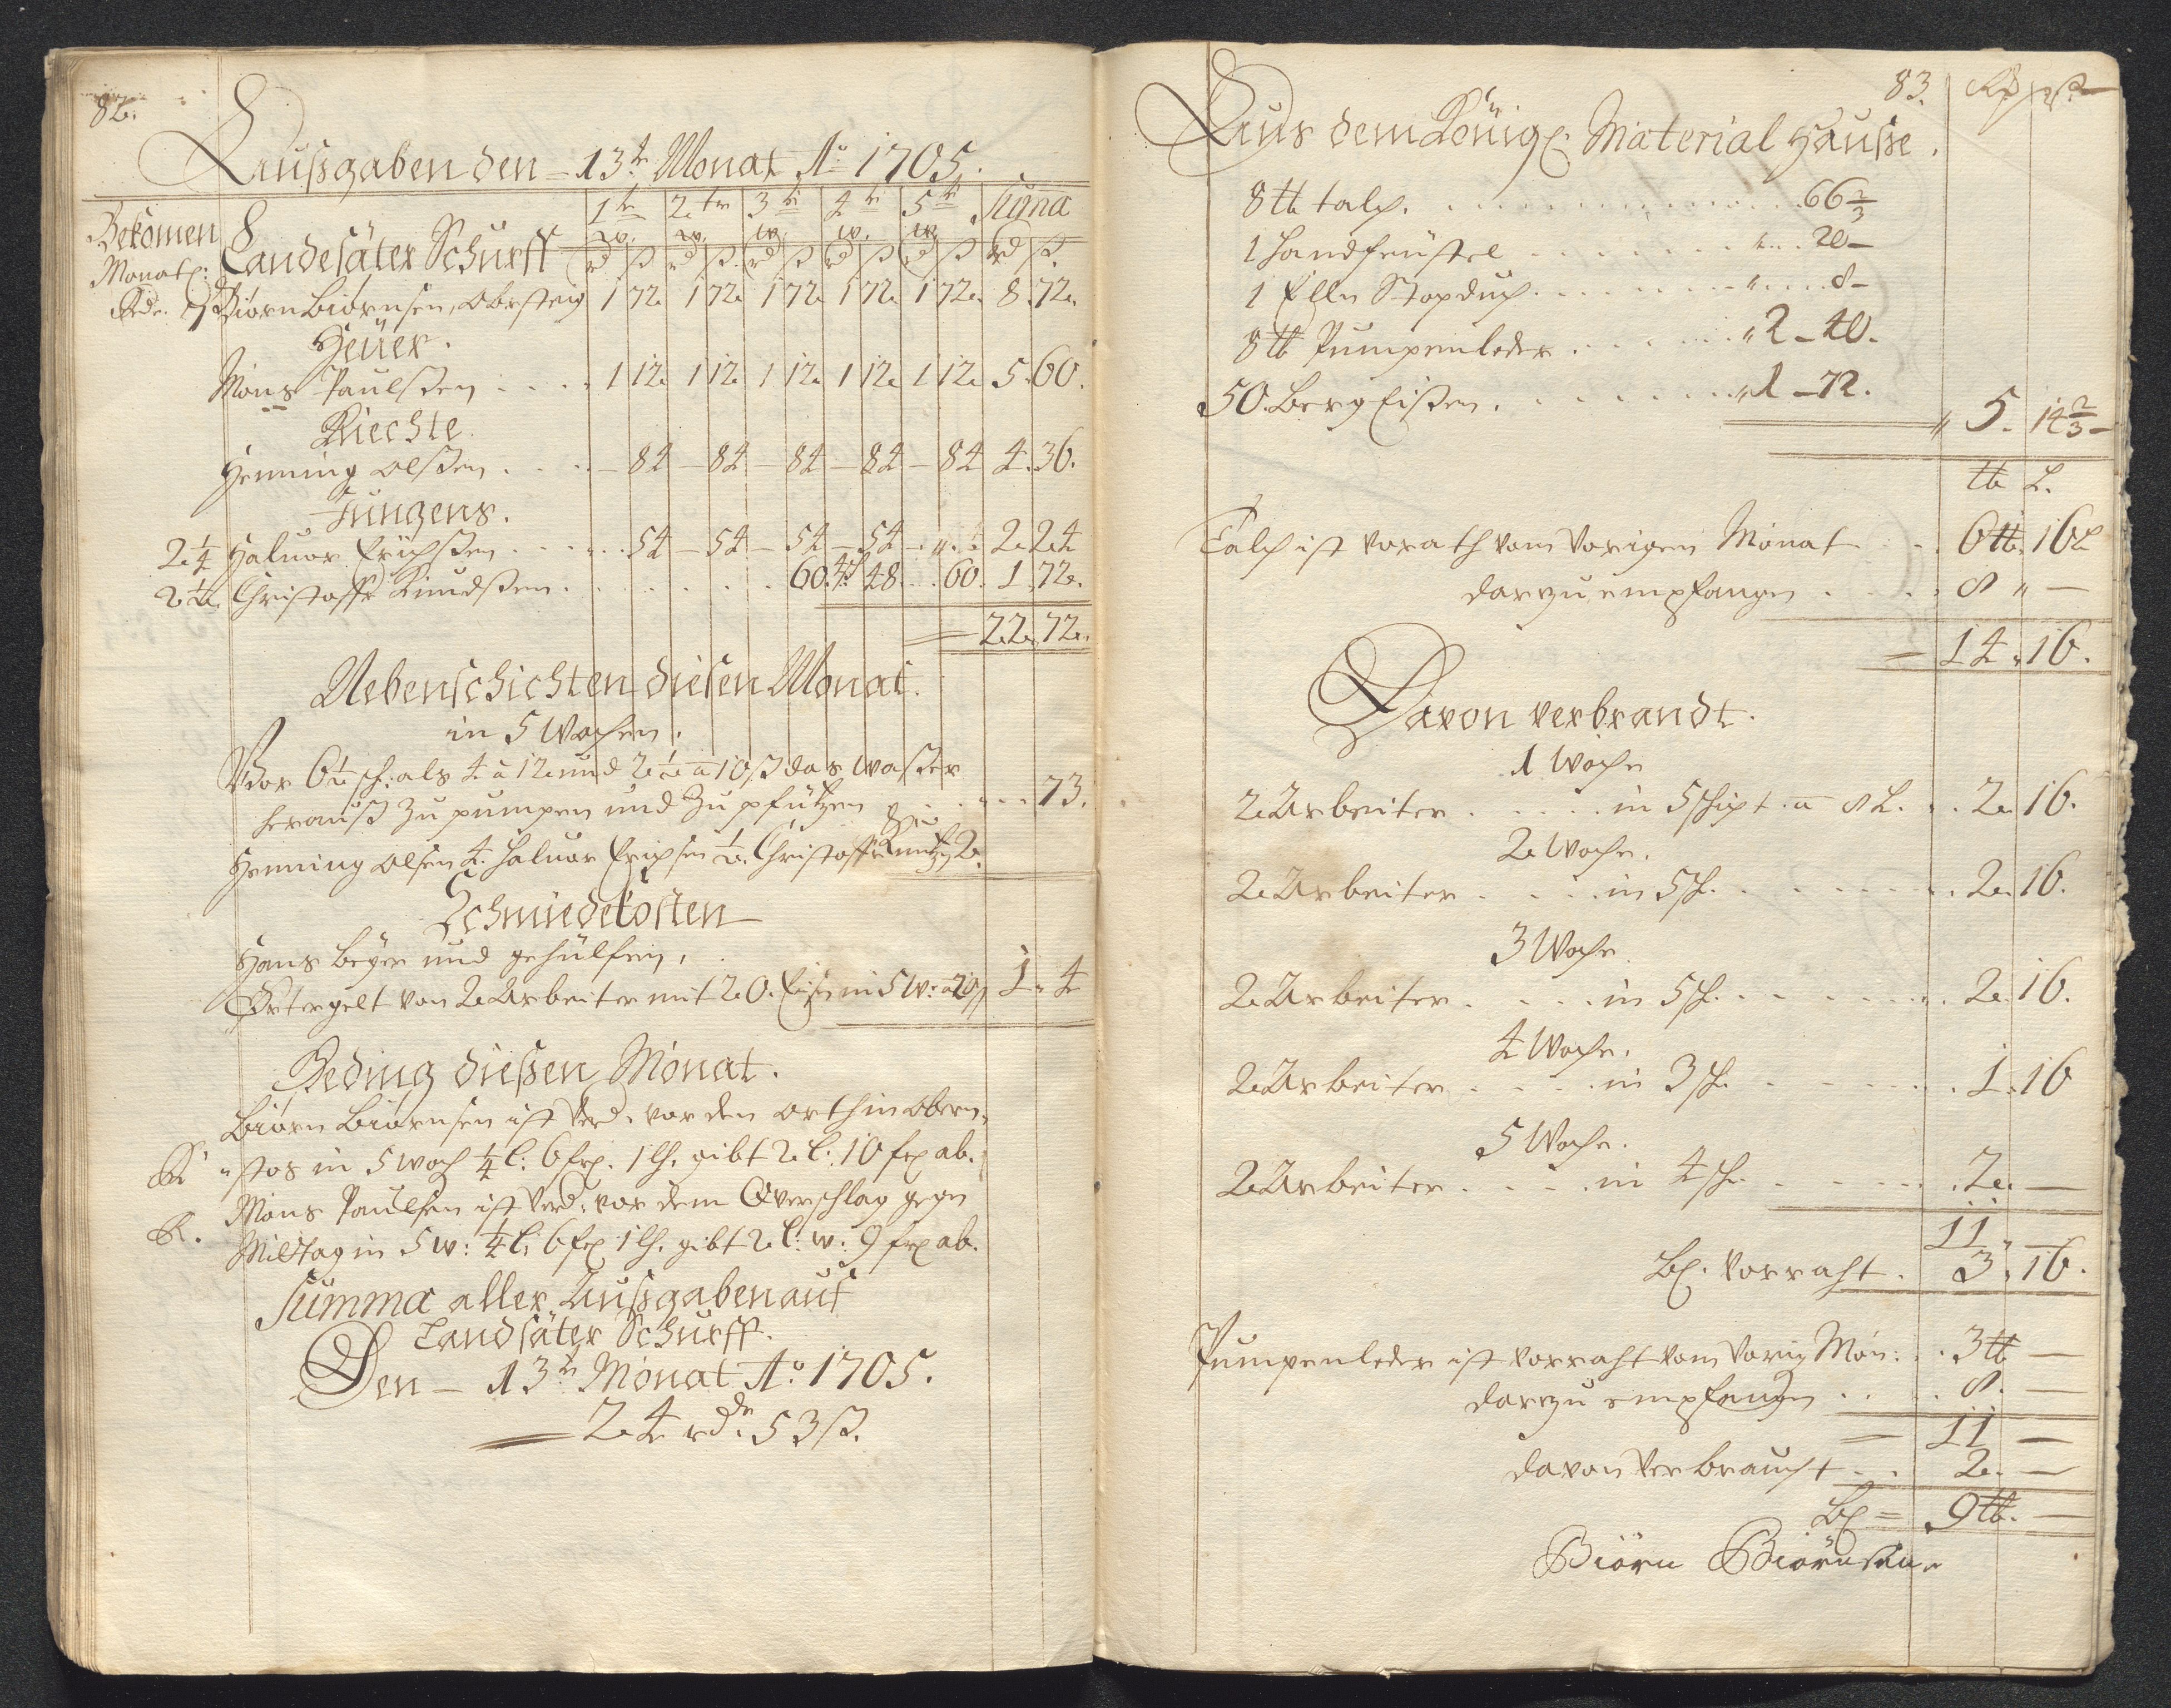 82.
Aussgaben den 13te Monat Ao 1705.
Bekomen Monatl: Landesäter Schurff 1te w. 2te w. 3te w. 4te w. 5te w. Suma
rd ß rd ß rd ß rd ß rd ß rd ß.
Biörn Biörnsen, Obersteig 1 72 1 72 1 72 1 72 1 72 8. 72.
Heüer.
Möns Paulssen . . . 1 12 1 12 1 12 1 12 1 12 5. 60.
Kiechte
Henning Olssen . . . – 84 – 84 – 84 – 84 – 84 4. 36.
Jungens.
2 1/4 Haluor Erichssen . . . 54 – 54 – 54 – 54 – „ . 2. 24
2 1/2. Christoffer Knudssen . . . . 60. 48 . . 60. 1. 72.
= 22. 72.
Nebenschichten diesen Monat.
in 5 Wochen.
Vor 6 1/2 sch: als 4 a 12 und 2 1/2 a 10 ß das Wasser
herauss zu pumpen und zu pfützen . . . . 73.
Henning Olsen 4. Haluor Erichsen 1/2. Christoffer Knutzen 2.
Schmiedekosten
Hans Beyer und gehülfen,
Örtergelt von 2 Arbeiter mit 20. Eisen in 5 W: a 20 ß 1. 4
Geding diessen Monat.
Biörn Biörnsen ist Verd. vor den orth in obern
stos in 5 woch 1/4 l: 6 frp. 1 lh. gibt 2 l: 10 frp ab.
Möns Paulsen ist Verd: vor dem Overschlag gegen
Mittag in 5 W: 1/4 l: 6 frp 1 lh. gibt 2 l: w: 9 frp ab.
Summa aller Aussgaben auf
Landsäter Schurff.
Den – 13te Monat Ao 1705.
= 24 rdr. 53 ß.
83. Rd ß
Aus dem Königl. Material Hausse.
8 ℔ talch. . . . . . 66 2/3
1 Handfeüstel . . . . . „ . . 20 –
1 Elln Stopduch . . . . . „ . . . 8 –
8 ℔ Pumpenleder . . . . . „ 2 – 40.
50. Berg Eissen. . . . . . „ 1 – 72.
„ 5. 14 2/3 –
℔ L.
Talch ist vorath vom Vorigen Monat . . 6 ℔. 16 L
darzu empfangen . . . . 8 „ –
= 14. 16.
Davon verbrandt.
1 Woche
2 Arbeiter . . . . . in 5 schicht. a 8 L. . . 2. 16.
2 Woche.
2 Arbeiter . . . . in 5 sch. . . . . . 2. 16.
3 Woche.
2 Arbeiter . . . . in 5 sch. . . . . . 2. 16.
4 Woche.
2 Arbeiter . . . . in 3 sch. . . . . . 1. 16
5 Woche.
2 Arbeiter . . . . in 4 sch. . . . . . 2. –
11 „ –
Bl. Vorraht. 3. 16.
Pumpenleder ist vorraht vom Vorig Mon: . . 3 ℔ –
darzu empfangen . . . 8. –
= 11 –
davon verbraucht . . 2. –
Bl = 9 ℔. –
Biörn Biörnsen